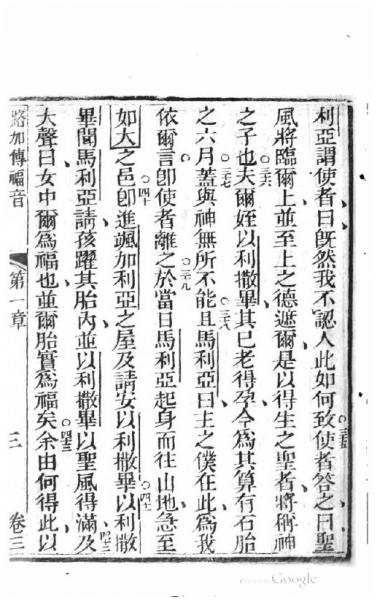 利亞謂使者曰旣然我不認人此如何致使者答之曰聖
三五
風將臨爾上並至上之德遮爾是以得生之聖者將稱神
之子也夫爾姪以利撒畢其已老得孕今爲其算有石胎
三六
之六月蓋與神無所不能且馬利亞曰主之僕在此爲我
三七
三八
依爾言卽使者離之於當日馬利亞起身而往山地急至
三九
如大之邑卽進颯加利亞之屋及請安以利撒畢以利撒
四十
四一
畢聞馬利亞請孩躍其胎內並以利撒畢以聖風得滿及
四二
大聲曰女中爾爲福也並爾胎實爲福矣余由何得此以
四三
路加傳福音
第一章
三
卷三
Google